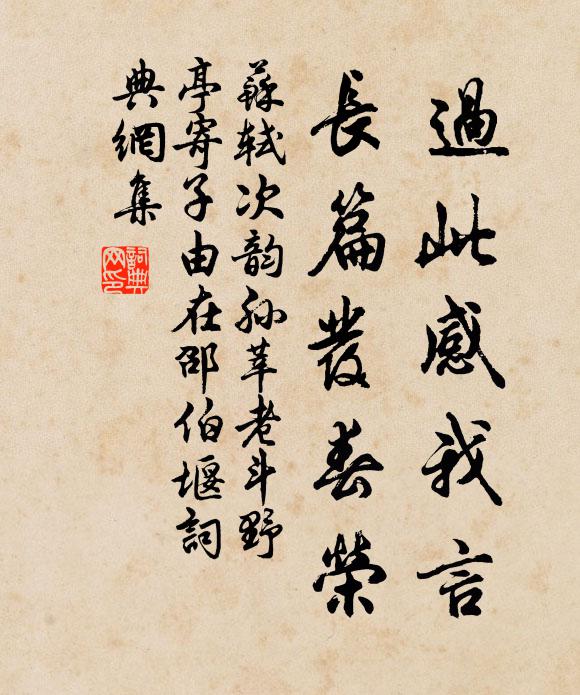 過此感我言
長篇發春榮
蘇軾次韵孫莘老斗野
亭寄子由在邵伯堰詞
典網集
詞典网印